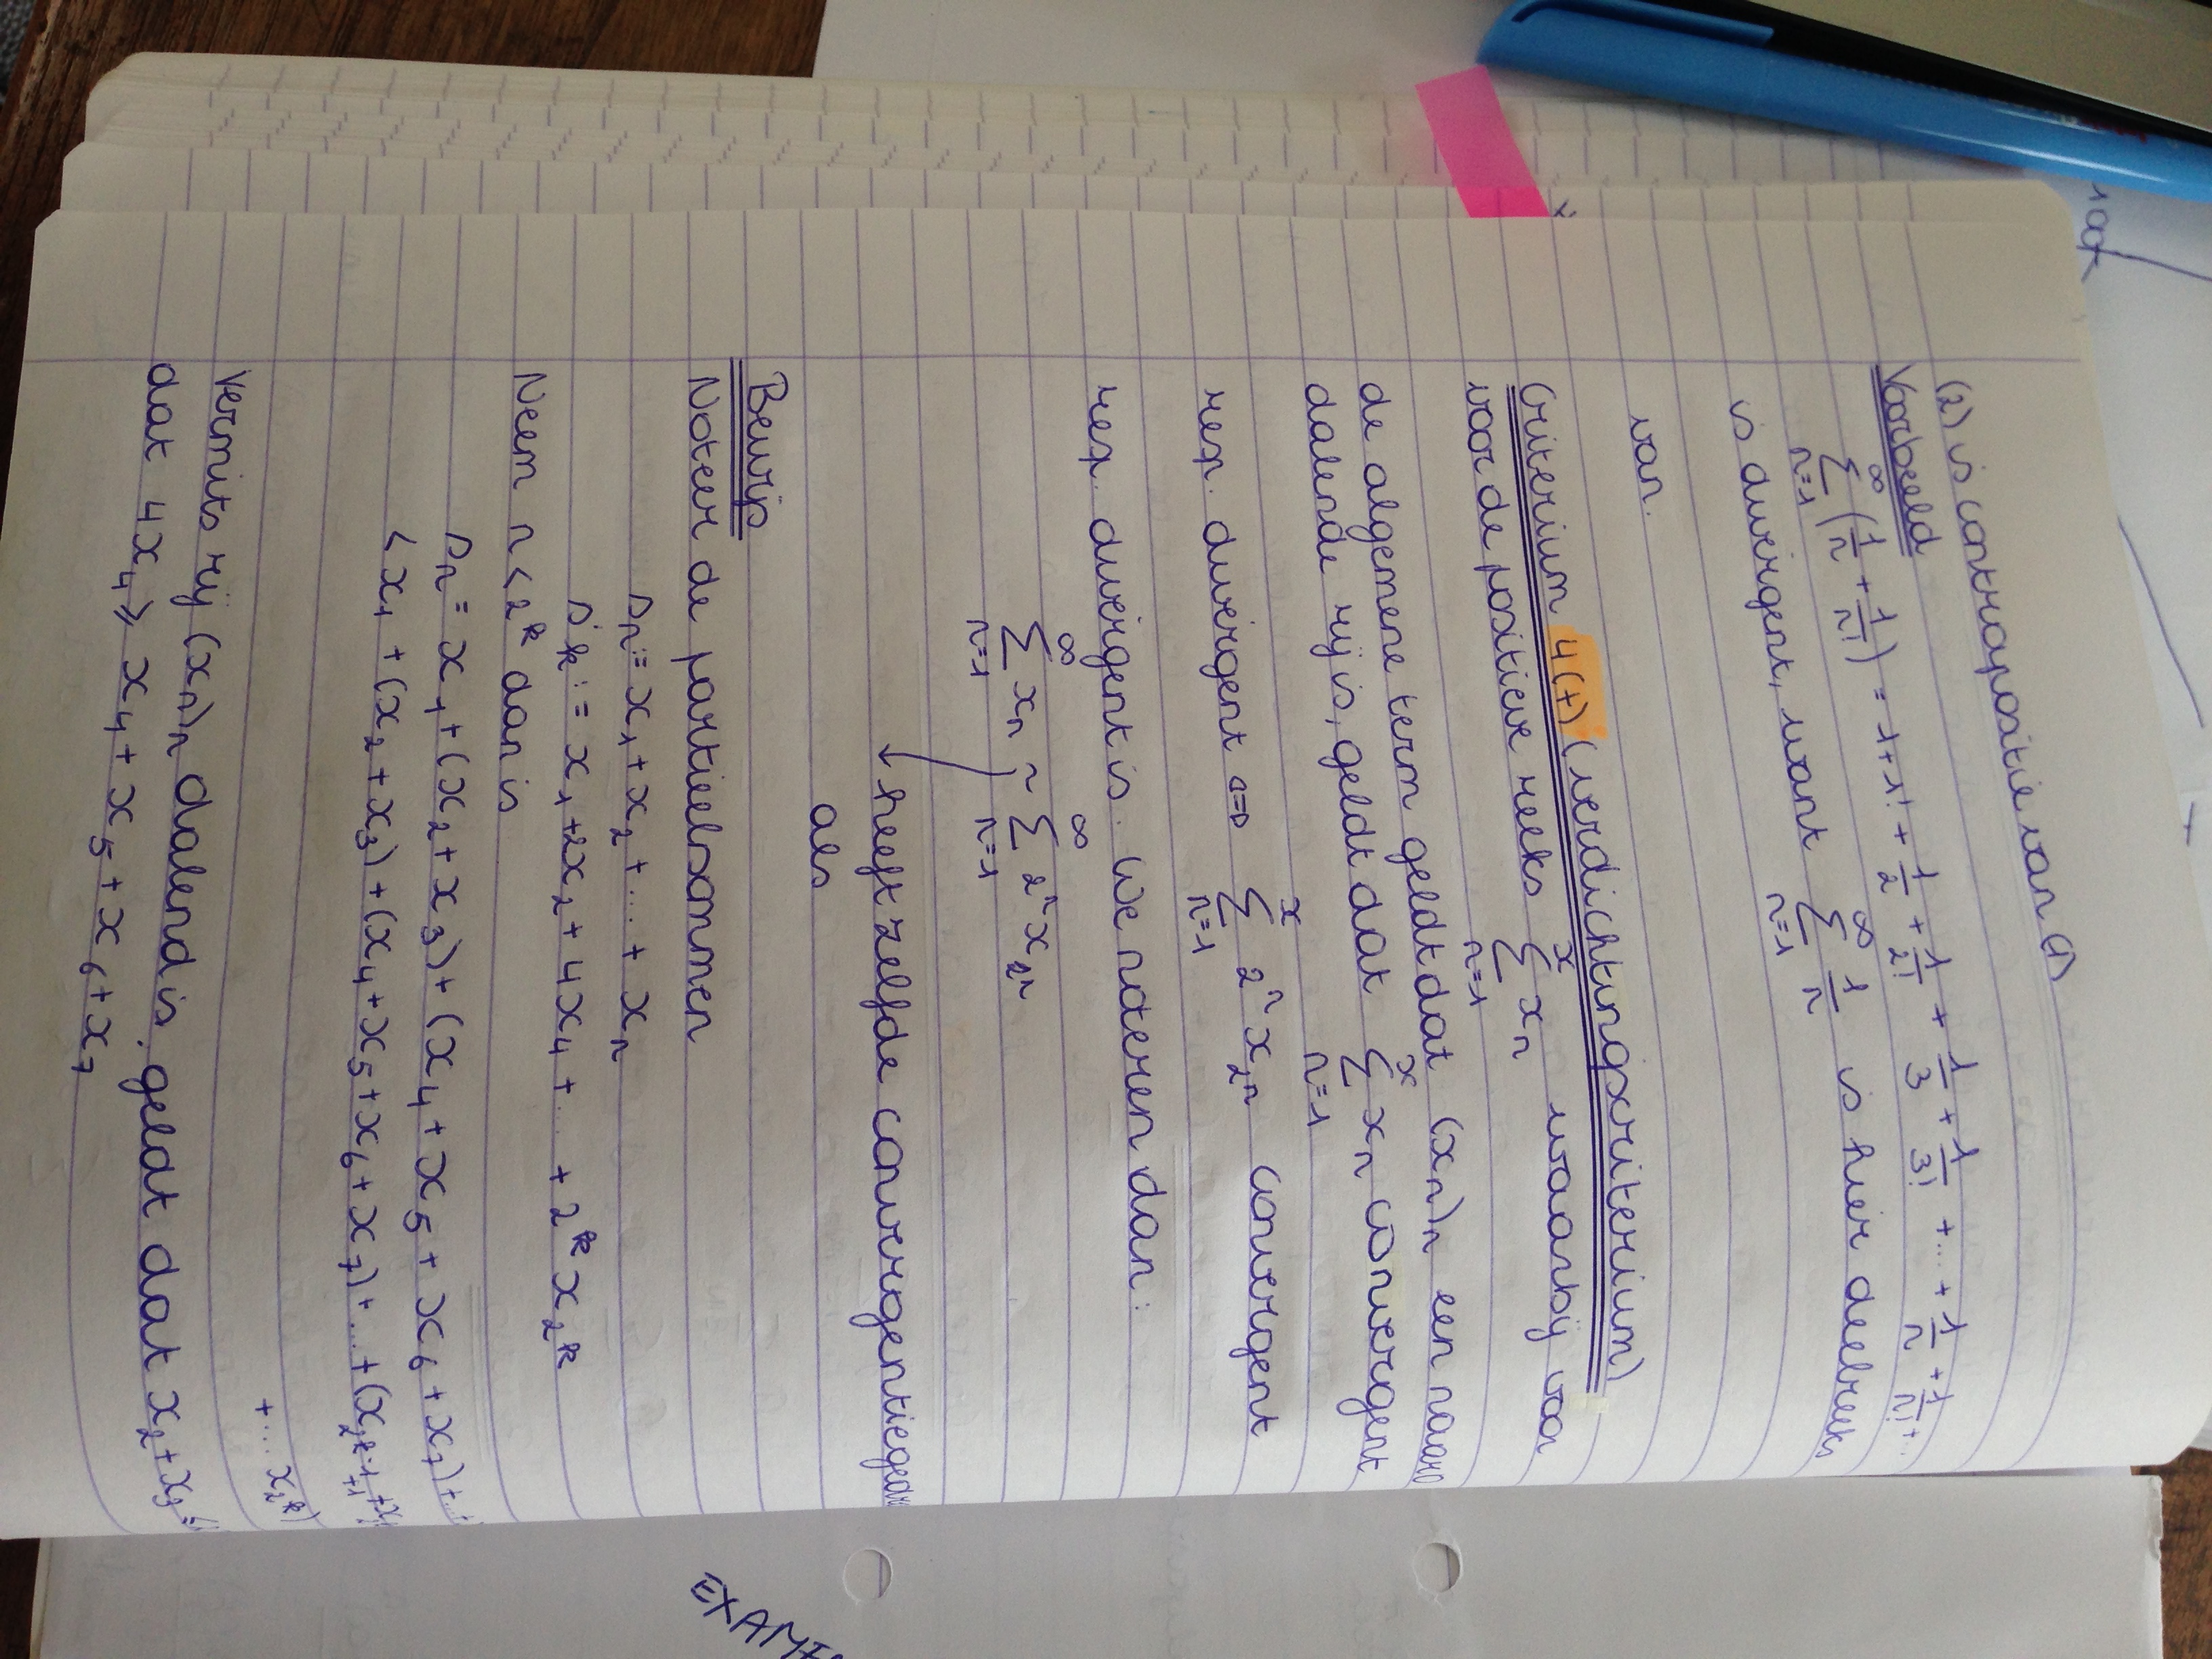 (2) is contrapositie van (1)
Voorbeeld
∞
∑ (1/n + 1/n!) = 1 + 1! + 1/2 + 1/2! + 1/3 + 1/3! + ... + 1/n + 1/n! + ...
n=1
is divergent, want ∞∑n=1 1/n is hier deelreeks
van.
Criterium 4(+) (verdichtingscriterium)
voor de positieve reeks ∞∑n=1 xn waarbij voor
de algemene term geldt dat (xn)n een naar
dalende rij is, geldt dat ∞∑n=1 xn convergent
resp. divergent ⇔ ∞∑n=1 2^n x2^n convergent
resp. divergent is. We noteren dan:
∞∑n=1 xn ~ ∞∑n=1 2^n x2^n
↳ heeft zelfde convergentiegedrag
als
Bewijs
Noteer de partieelsommen
sn := x1 + x2 + ... + xn
s'k := x1 + 2x2 + 4x4 + ... + 2^k x2^k
Neem n < 2^k dan is
sn = x1 + (x2 + x3) + (x4 + x5 + x6 + x7) + ...
< x1 + (x2 + x3) + (x4 + x5 + x6 + x7) + ... + (x2^k-1 +1
+ ... x2^k)
Vermits rij (xn)n dalend is, geldt dat x2 + x3 ≤
dat 4x4 ≥ x4 + x5 + x6 + x7